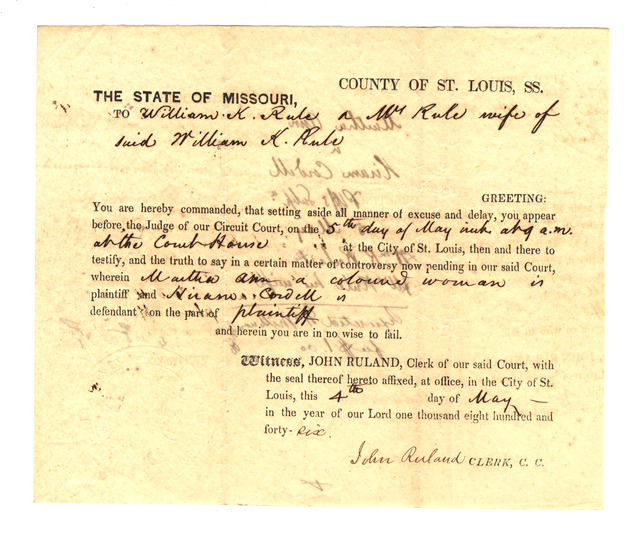 COUNTY OF ST. LOUIS, SS.
THE STATE OF MISSOURI,
TO William K. Rule & Mrs Rule wife of
said William K. Rule
GREETING:
You are hereby commanded, that setting aside all manner of excuse and delay, you appear
before the Judge of our Circuit Court, on the 5th day of May inst. at 9 a.m.
at the Court House at the City of St. Louis, then and there to
testify, and the truth to say in a certain matter of controversy now pending in our said Court,
wherein Martha Ann a coloured woman is
plaintiff and Hiram Cordell is
defendant on the part of plaintiff
and herein you are in no wise to fail.
Witness, JOHN RULAND, Clerk of our said Court, with
the seal thereof hereto affixed, at office, in the City of St.
Louis, this 4th day of May
in the year of our Lord one thousand eight hundred and
forty-six.
John Ruland CLERK, C. C.